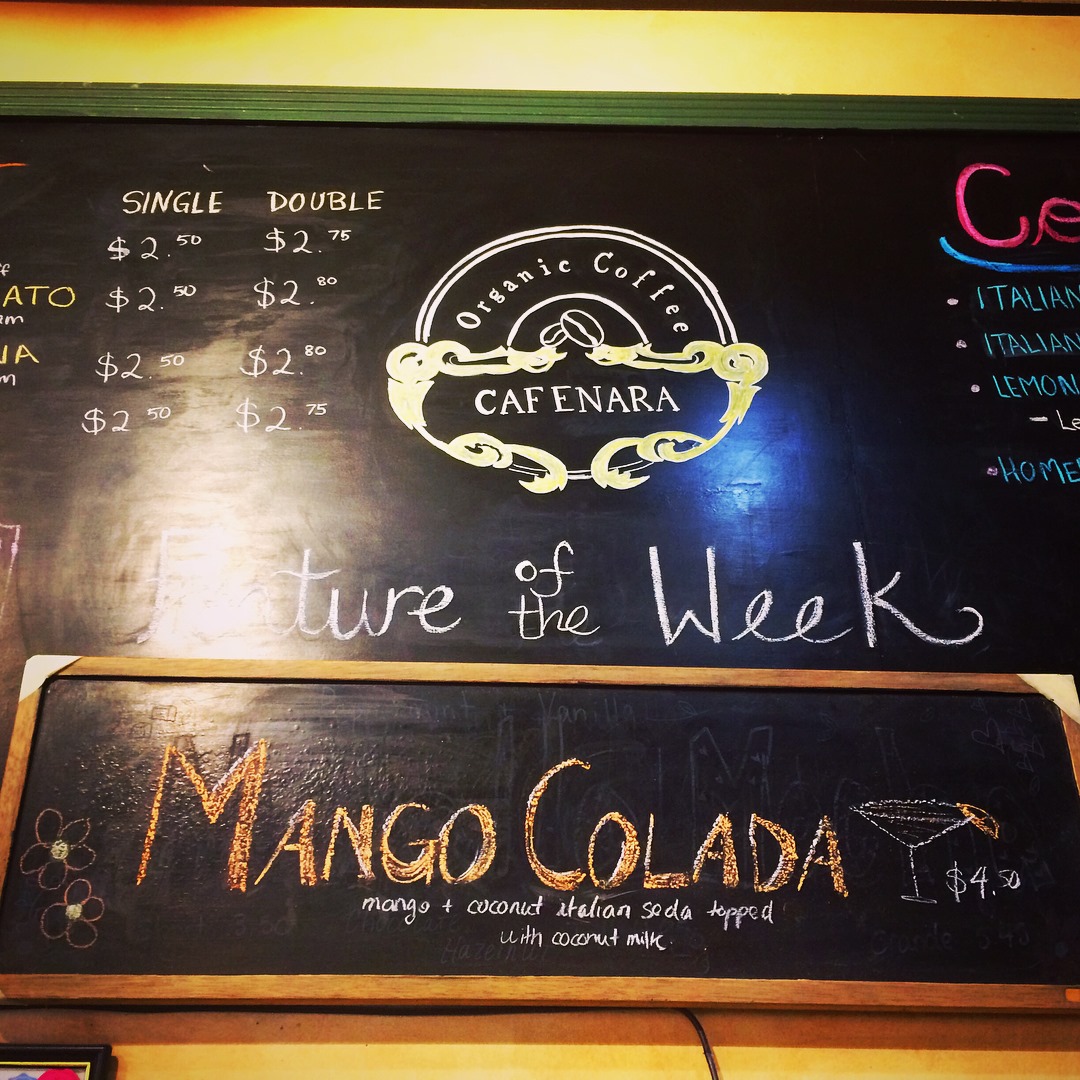 SINGLE DOUBLE
$2.50 $2.75
ATO $2.50 $2.80
$2.50 $2.80
$2.50 $2.75
Organic Coffee
CAFENARA
Ce
ITALIAN
ITALIAN
LEMON
- Le
HOME
Feature of the Week
MANGO COLADA
$4.50
mango + coconut italian soda topped
with coconut milk.